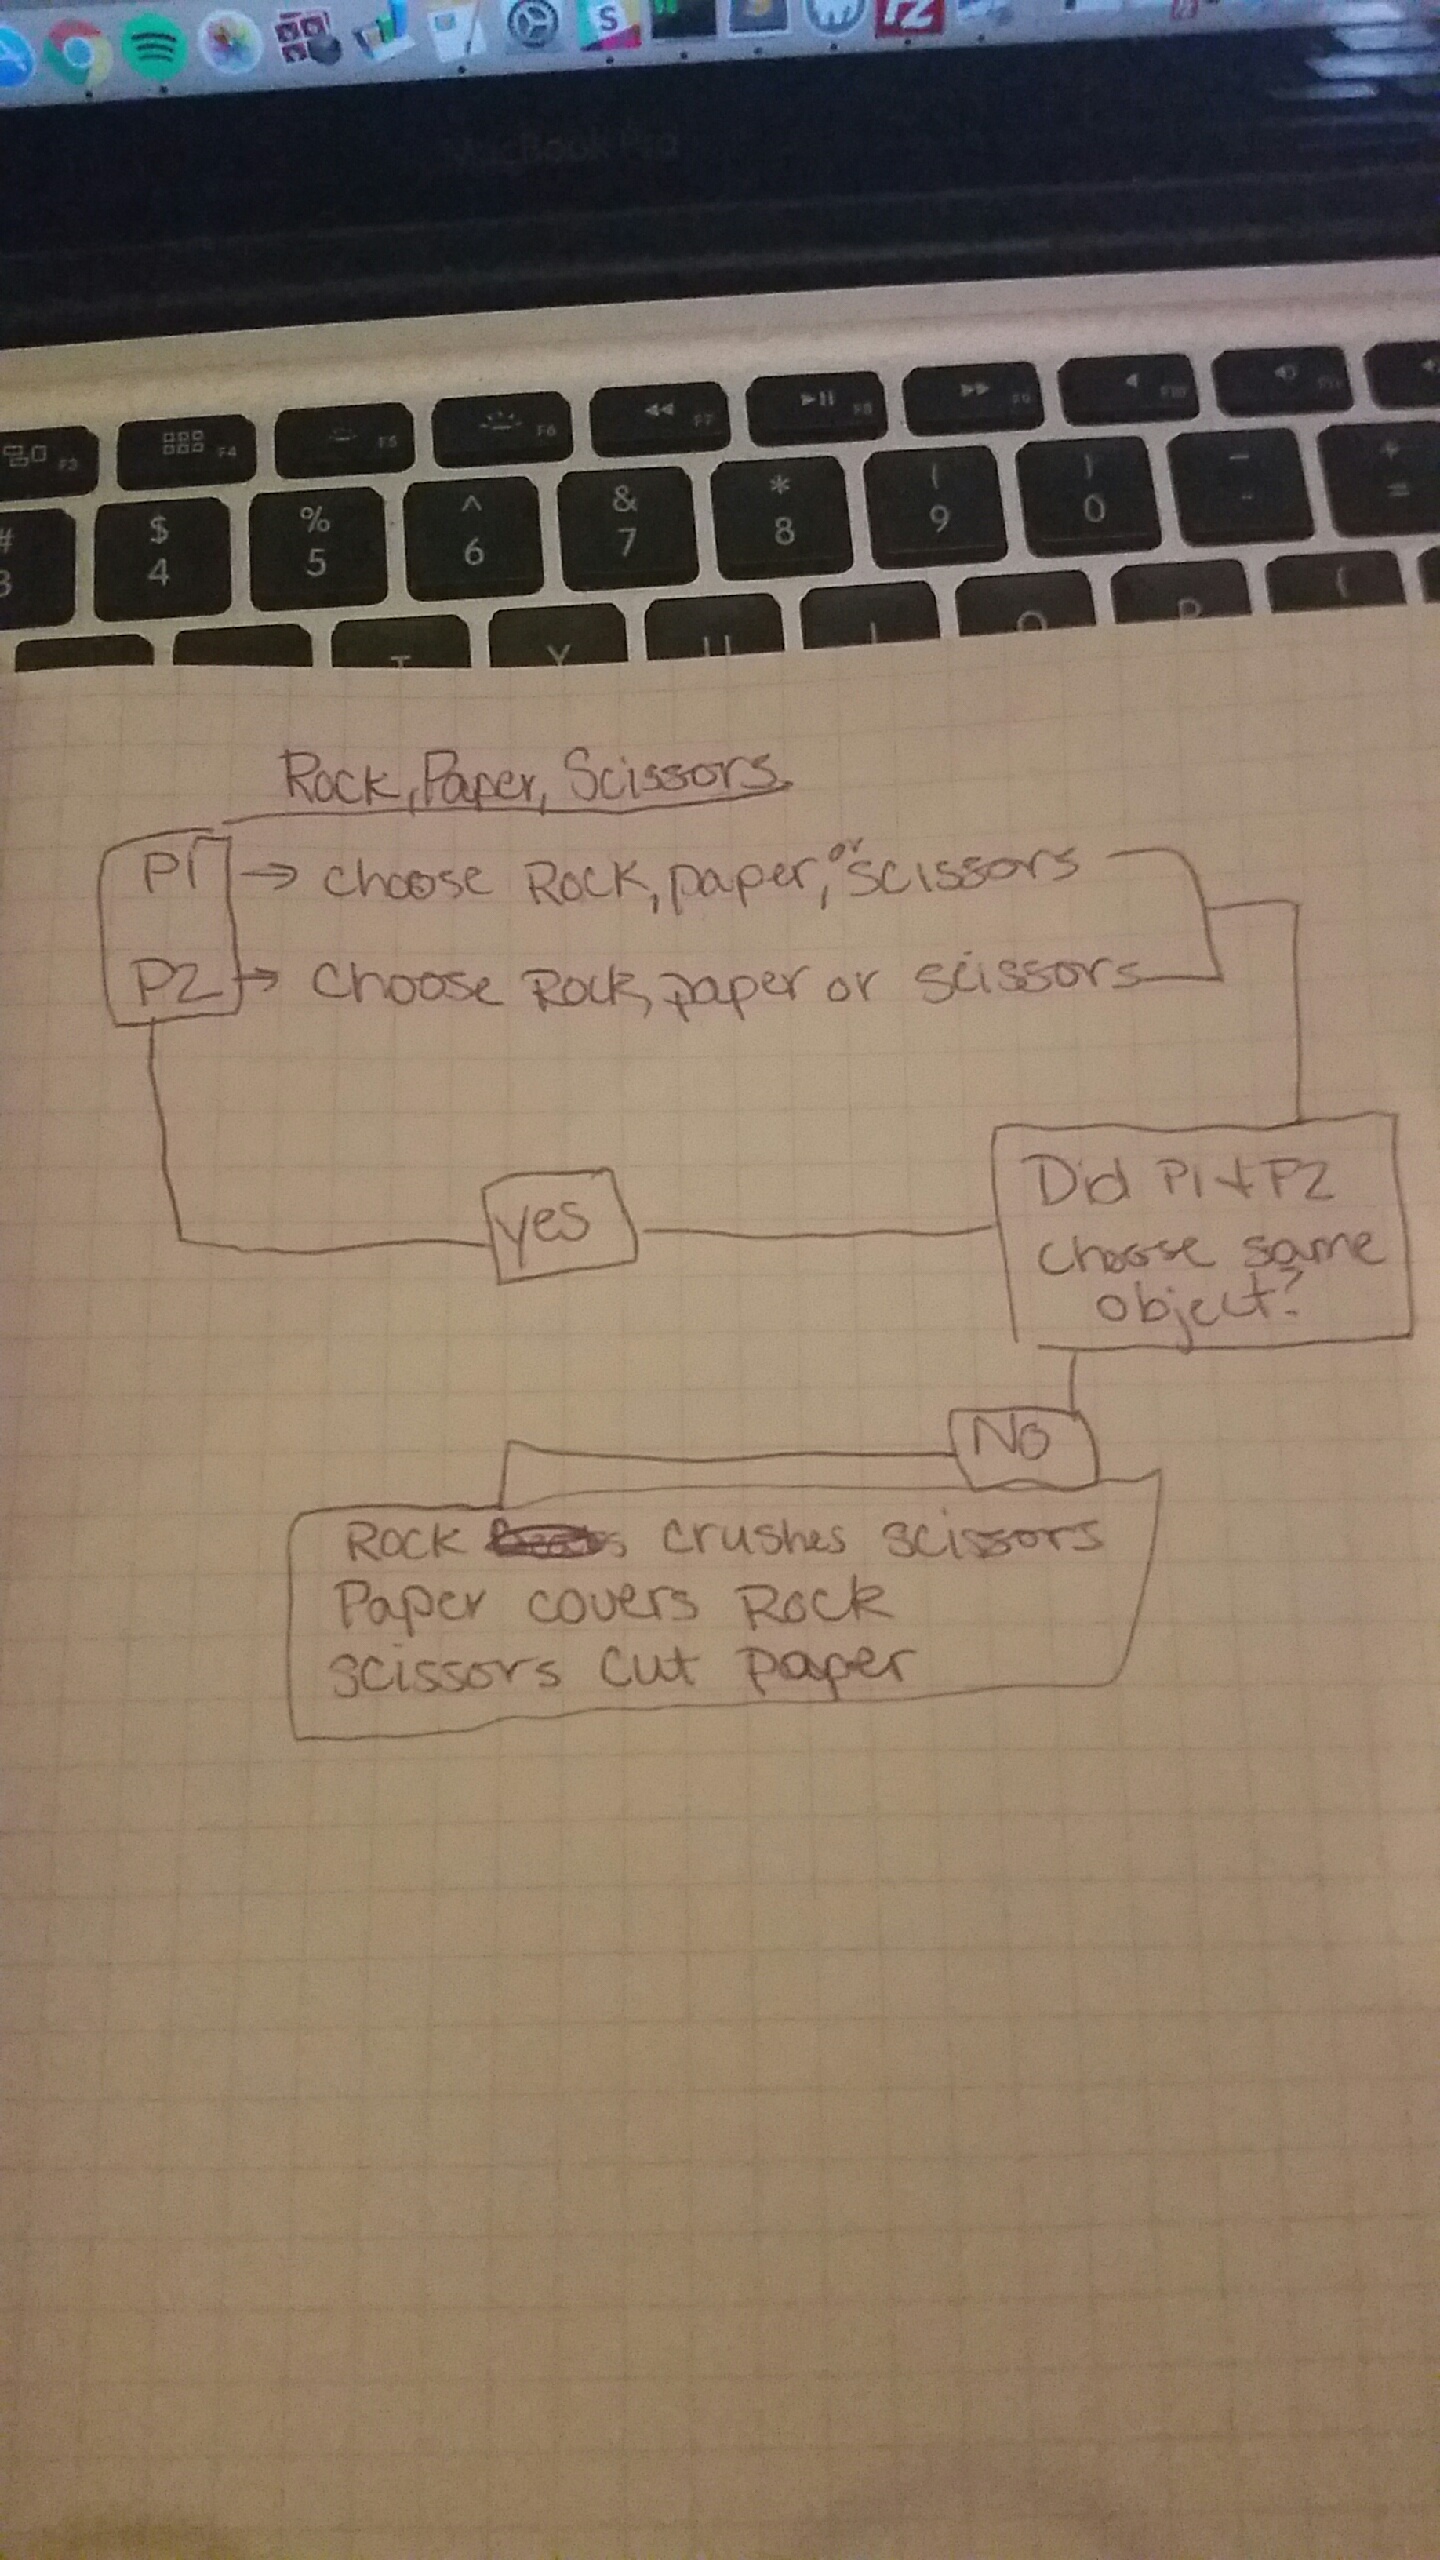 S
FZ
MacBook Pro
F3 F4 F5 F6 F7 F8 F9 F10 F11
# $ % ^ & * ( ) - +
3 4 5 6 7 8 9 0 - =
T Y U I O P {
Rock, Paper, Scissors
P1 → choose Rock, paper, or scissors
P2 → choose Rock, paper or scissors
Did P1 + P2
choose same
object?
yes
No
Rock crushes scissors
Paper covers Rock
scissors cut paper